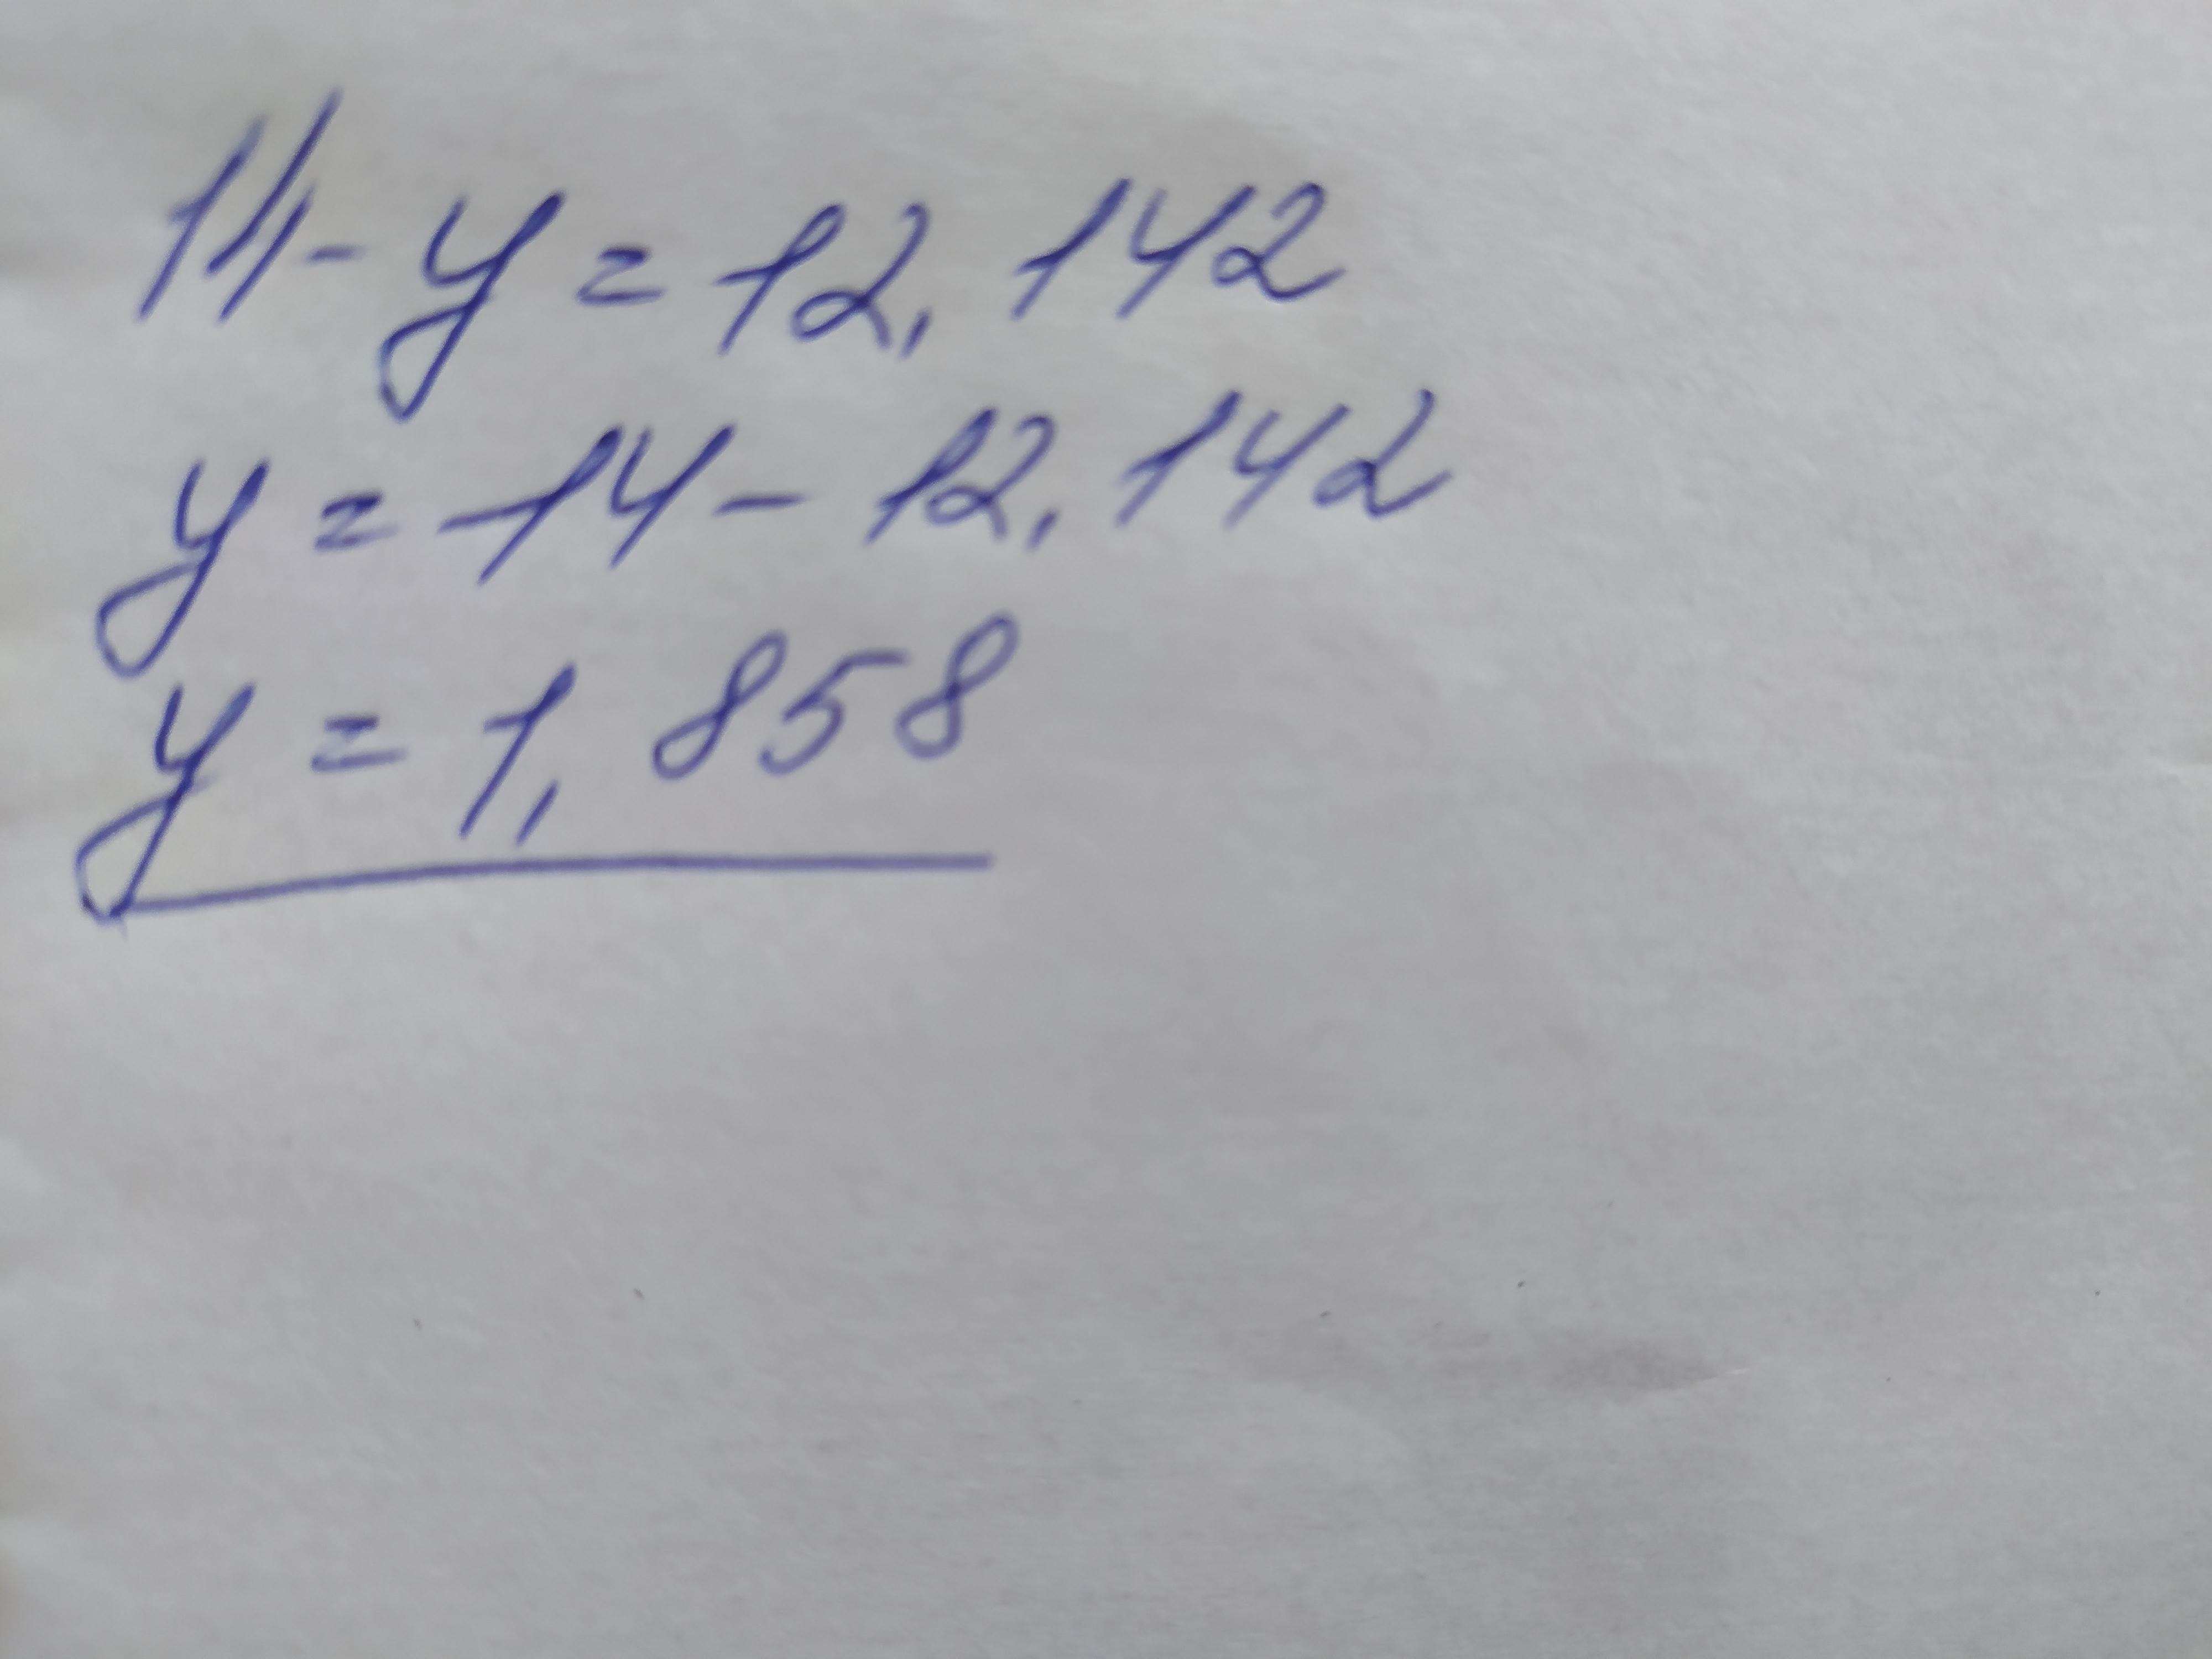 14-y=12,142
y=14-12,142
y=1,858